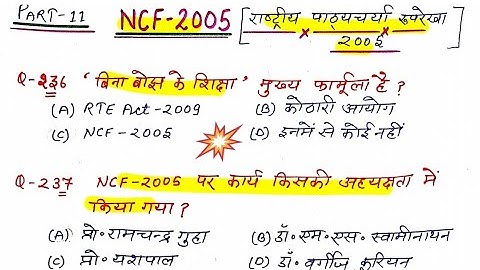 PART-11 NCF-2005 [राष्ट्रीय पाठ्यचर्या रूपरेखा
2005]
Q-236 'बिना बोझ के शिक्षा' मुख्य फार्मूला है ?
(A) RTE Act-2009 (B) कोठारी आयोग
(C) NCF-2005 (D) इनमें से कोई नहीं
Q-237 NCF-2005 पर कार्य किसकी अध्यक्षता में
किया गया ?
(A) प्रो॰ रामचन्द्र गुहा (B) डॉ॰ एम॰ एस॰ स्वामीनाथन
(C) प्रो॰ यशपाल (D) डॉ॰ वर्गीज कुरियन